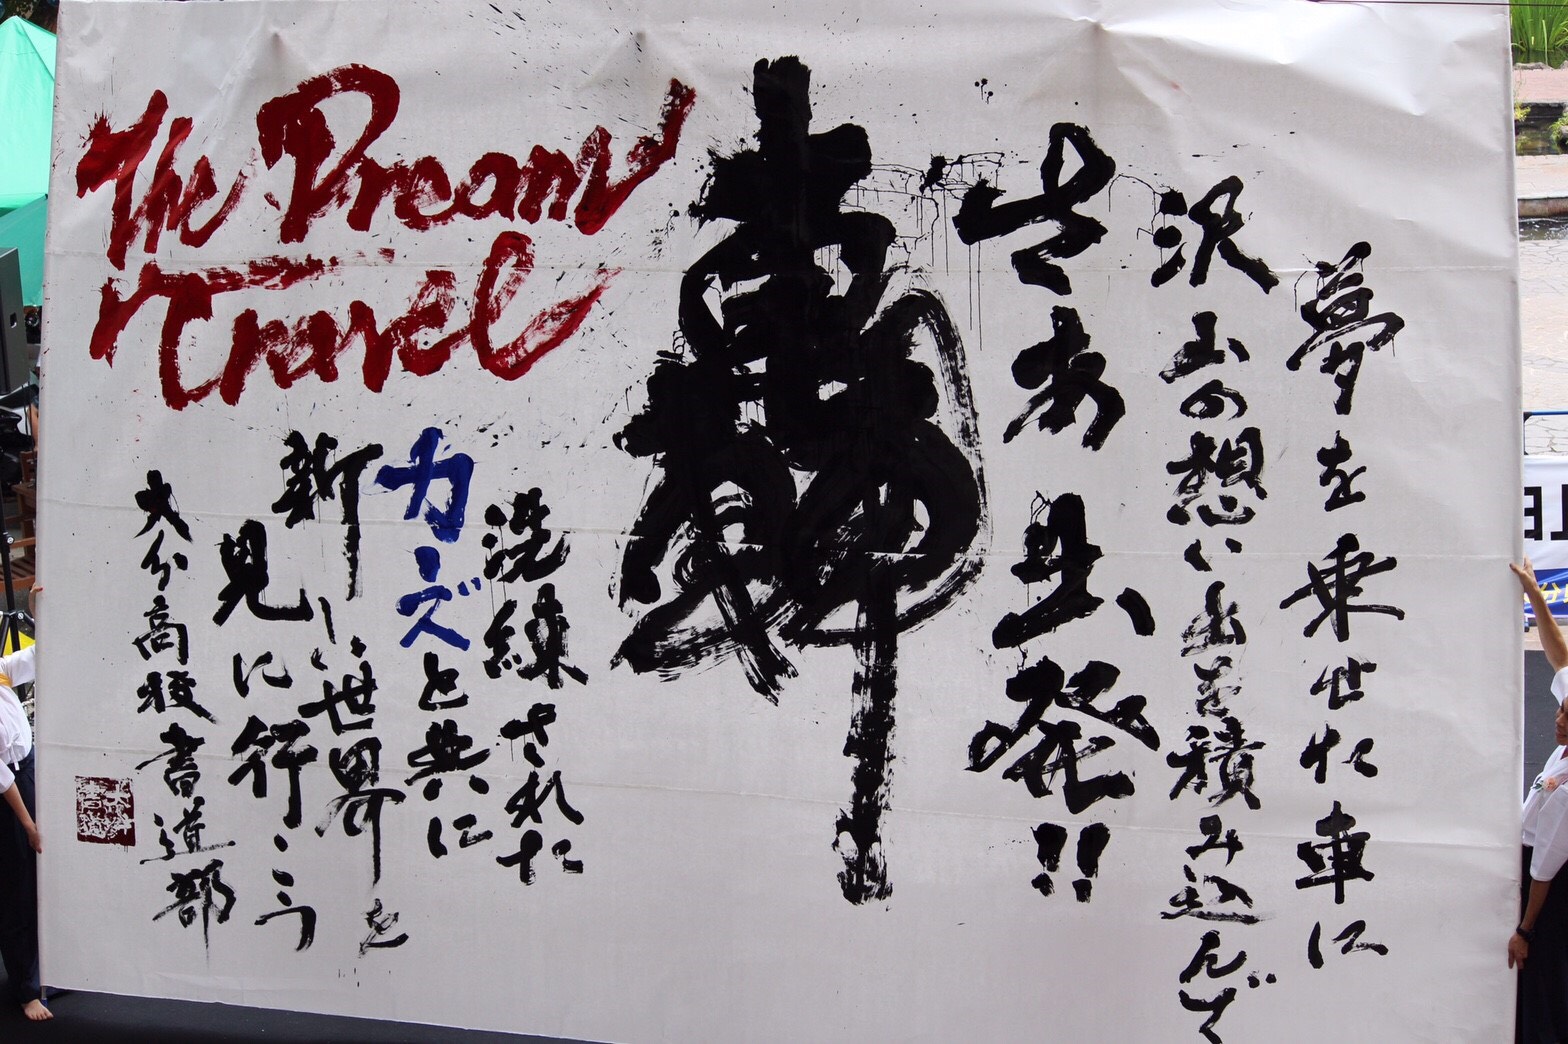 夢を乗せた車に
沢山の想い出を積み込んで
さあ出発!!
The Dream
Travel
洗練された
カーズと共に
新しい世界を
見に行こう
大分高校書道部